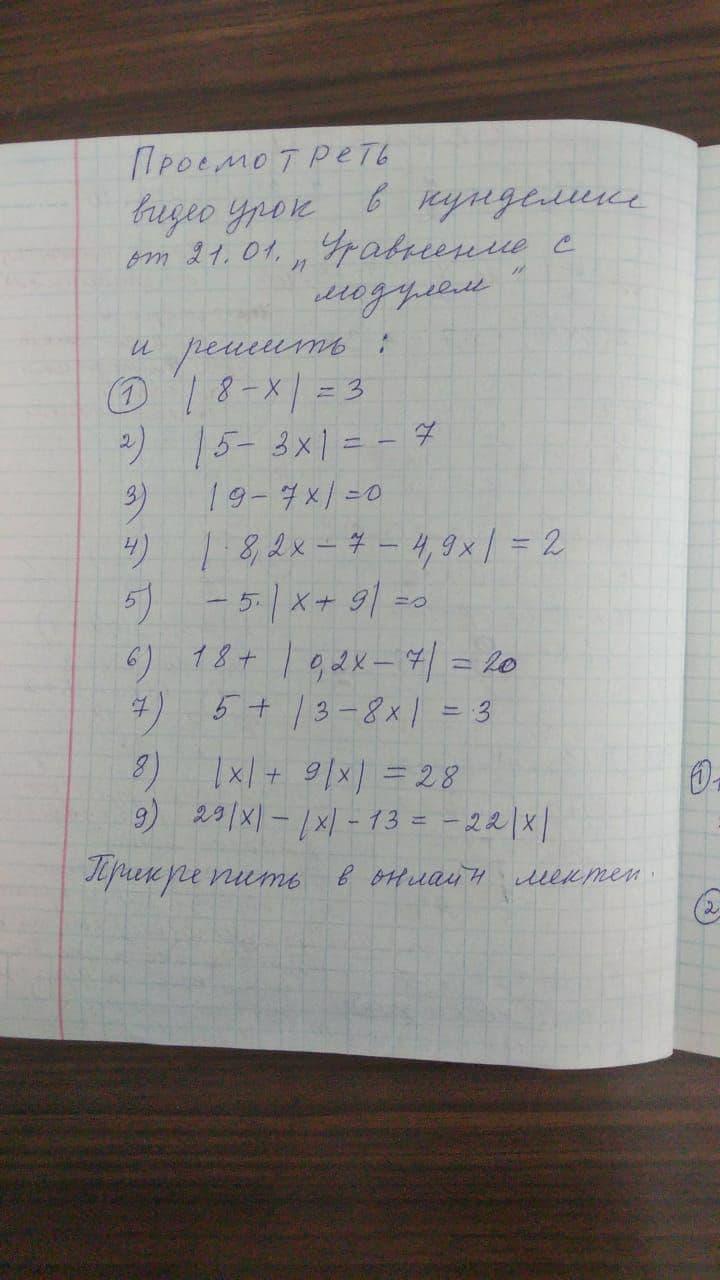 Просмотреть
видео урок в кунделике
от 21.01. „Уравнение с
модулем"
и решить:
① |8-x| = 3
2) |5- 3x| = - 7
3) |9- 7x| =0
4) |8,2x - 7 - 4,9x| = 2
5) -5·|x+ 9| =0
6) 18+ |0,2x- 7| = 20
7) 5 + |3-8x| = 3
8) |x| + 9|x| = 28
9) 29|x| - |x| - 13 = -22|x|
Прикрепить в онлайн мектеп.
①
②